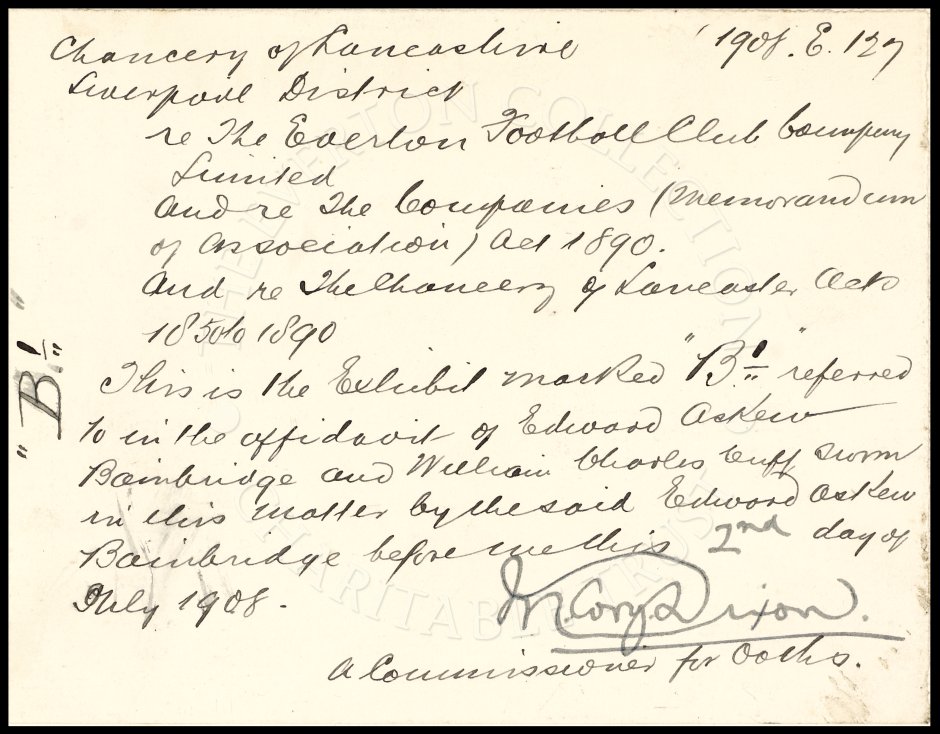 Chancery of Lancashire 1908. E. 127
Liverpool District
re The Everton Football Club Company
Limited
and re The Companies (Memorandum
of Association) Act 1890.
And re The Chancery of Lancaster Acts
1850 to 1890
This is the Exhibit marked "B1" referred
to in the affidavit of Edward Askew
Bainbridge and William Charles Cuff sworn
in this matter by the said Edward Askew
Bainbridge before me this 2nd day of
July 1908.
Cory Dixon.
A Commissioner for Oaths.
"B1"
THE EVERTON COLLECTION
CHARITABLE TRUST